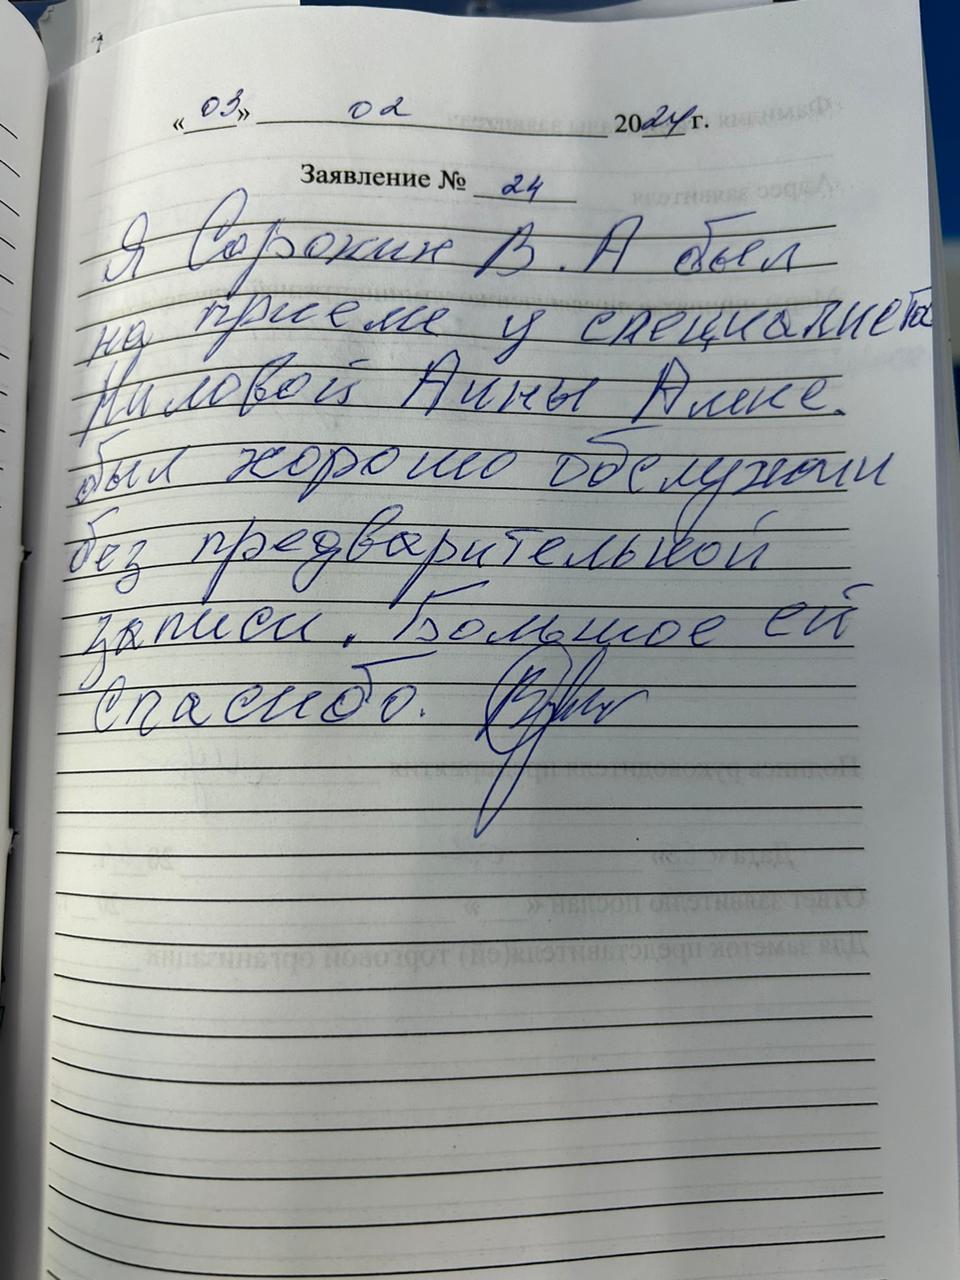 «03» 02 2024 г.
Заявление № 24
Я Сорокин В. А был
на приеме у специалиста
Миловой Анны Алекс.
был хорошо обслужен
без предварительной
записи. Большое ей
спасибо.